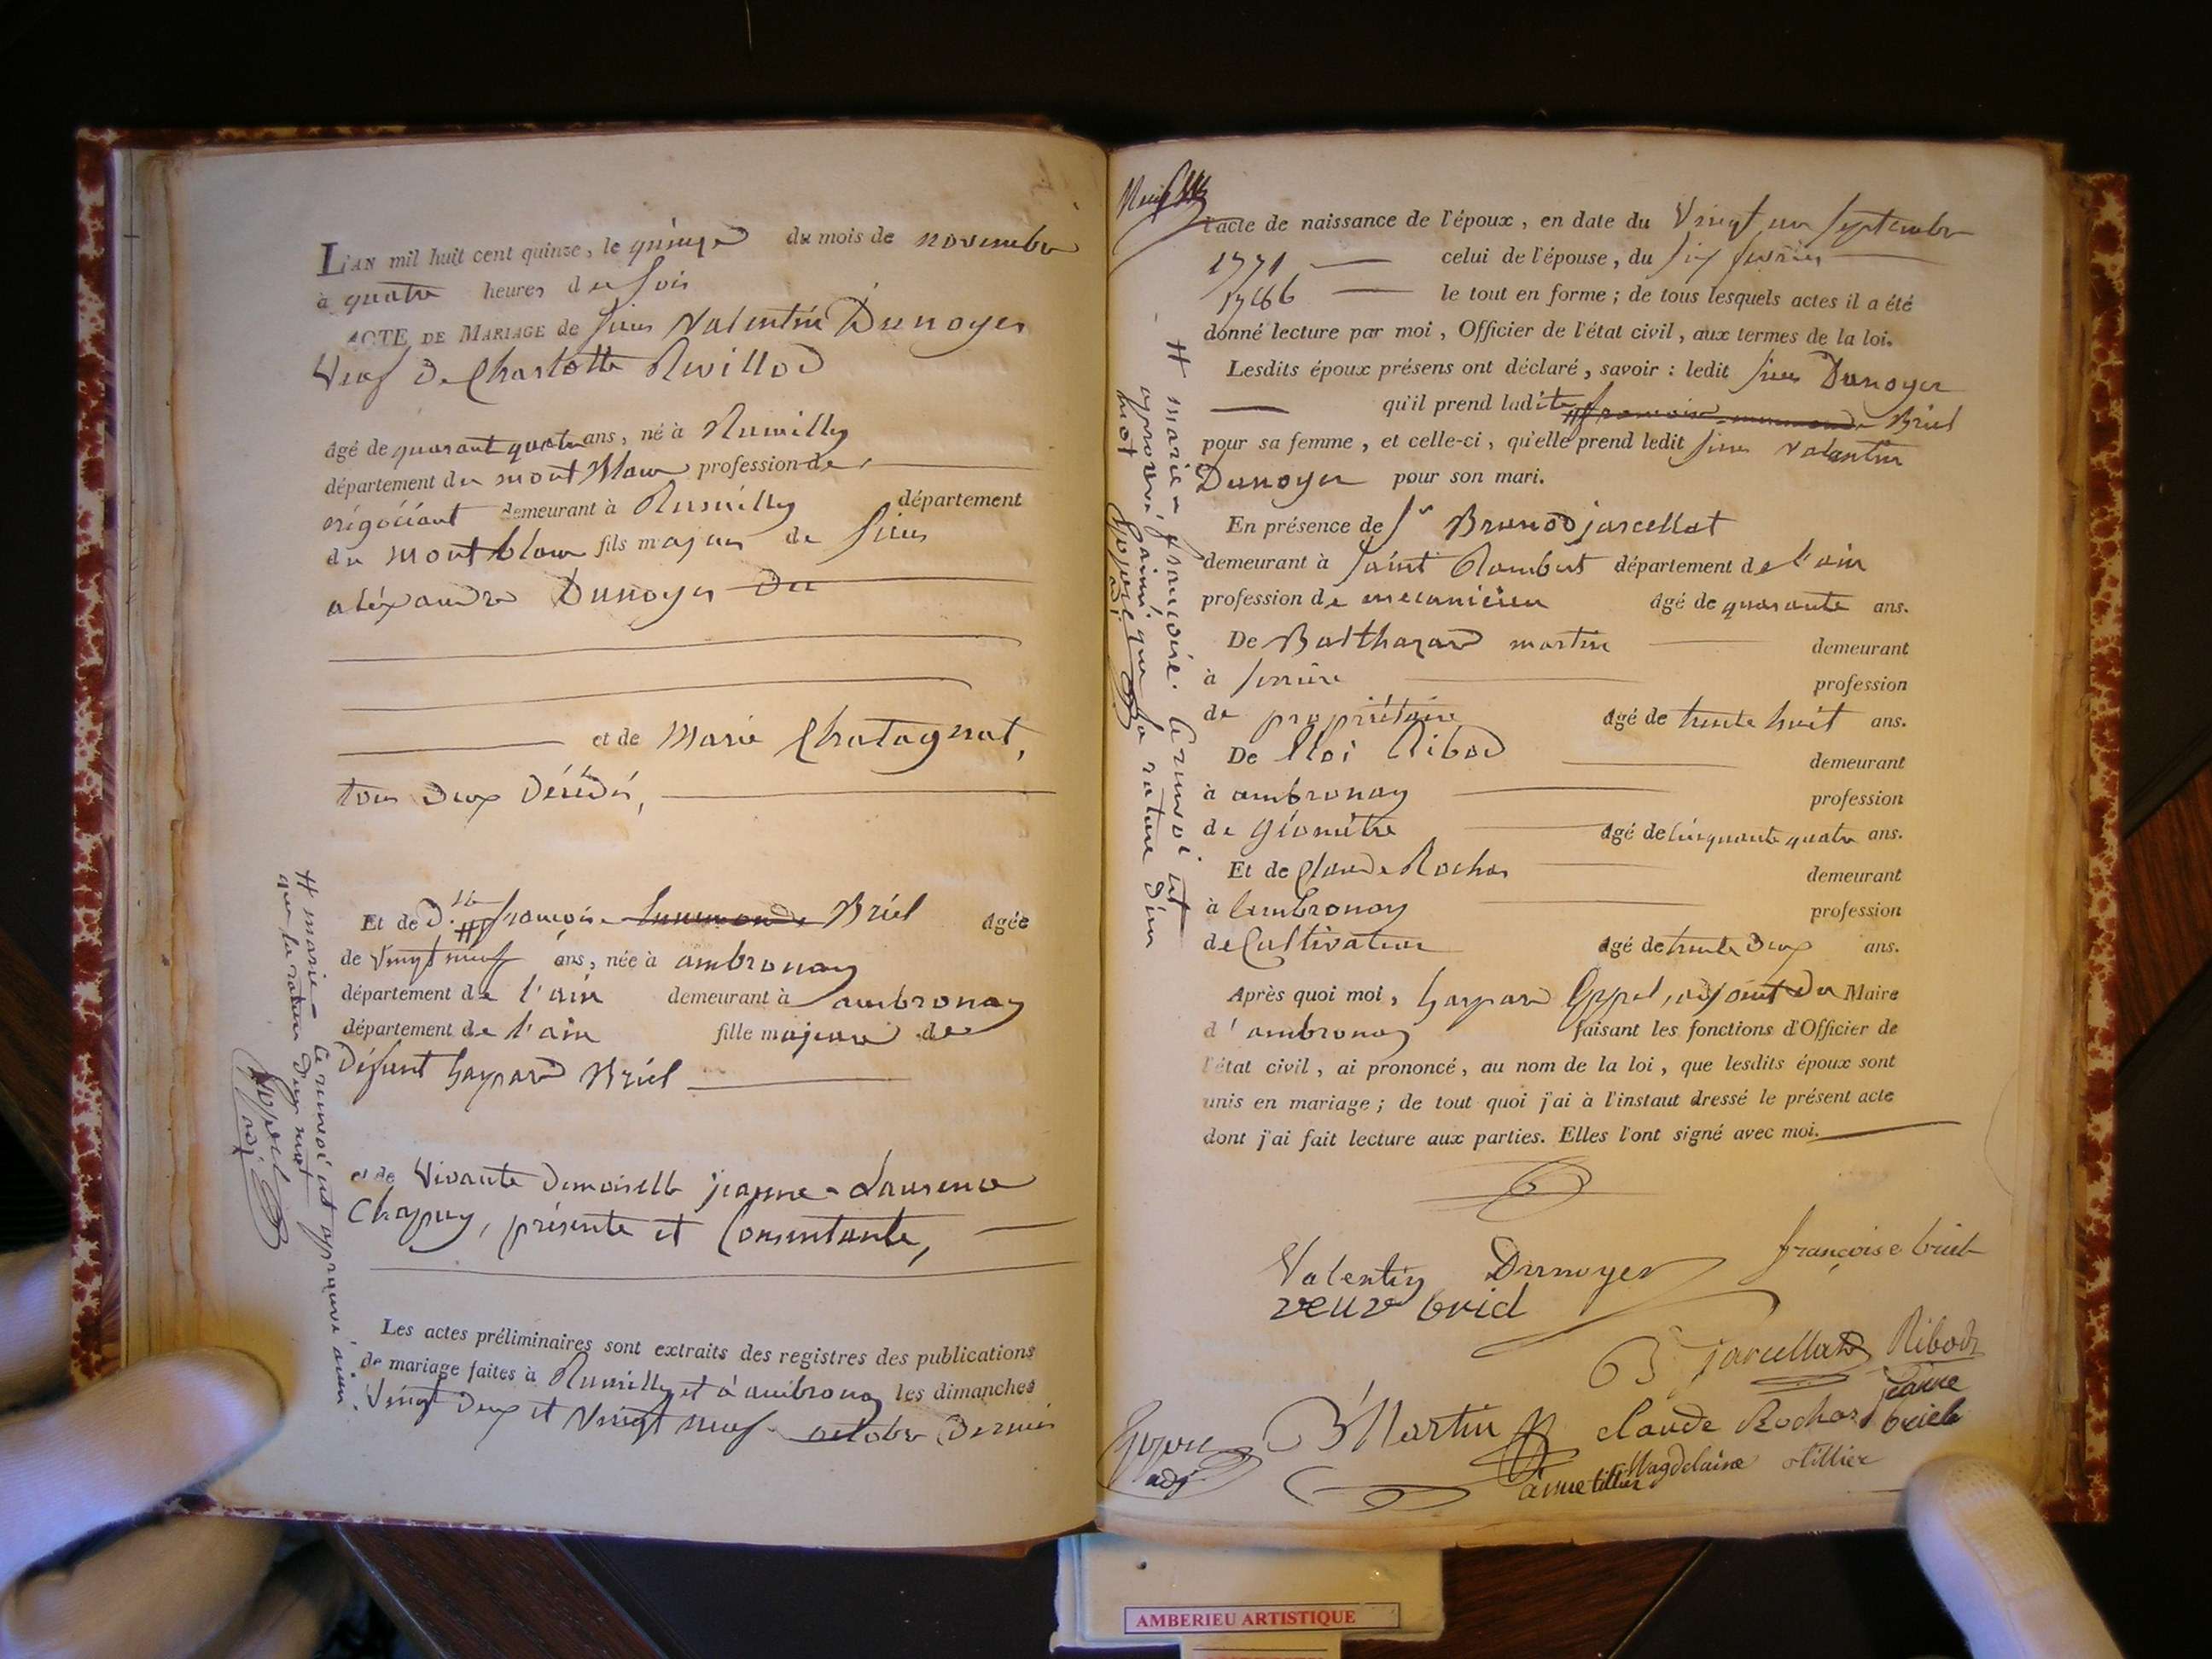 L'AN mil huit cent quinze, le quinze du mois de novembre
à quatre heures du soir
ACTE DE MARIAGE de sieur Valentin Dunoyer
Veuf de Charlotte Revillod
âgé de quarant quatre ans, né à Rumilly
département du mont Blanc profession de
négociant demeurant à Rumilly département
du mont blanc fils majeur de sieur
aléxandre Dunoyer
et de Marie Chatagnat,
tous deux Décédés,
Et de D.lle # françoise Briel âgée
de Vingt neuf ans, née à ambronay
département de l'ain demeurant à ambronay
département de l'ain fille majeure de
Défunt Gaspard Briel
et de Vivante Demoiselle jeanne-Laurence
Chapuy, présente et Consentante,
Les actes préliminaires sont extraits des registres des publications
de mariage faites à Rumilly et à ambronay les dimanches
Vingt deux et Vingt neuf octobre Dernier
# marie- Ce renvoi est approuvé ainsi
que la rature deux mots
adj.
l'acte de naissance de l'époux, en date du Vingt un septembre
1771, celui de l'épouse, du six février
1786 le tout en forme; de tous lesquels actes il a été
donné lecture par moi, Officier de l'état civil, aux termes de la loi.
Lesdits époux présens ont déclaré, savoir: ledit sieur Dunoyer
qu'il prend ladite # Briel
pour sa femme, et celle-ci, qu'elle prend ledit sieur Valentin
Dunoyer pour son mari.
En présence de Sr Bruno jarcellat
demeurant à Saint Rambert département de l'ain
profession de mecanicien âgé de quarante ans.
De Balthazard martin demeurant
à profession
de propriétaire âgé de trente huit ans.
De Eloi Ribod demeurant
à ambronay profession
de géomètre âgé de Cinquante quatre ans.
Et de Claude Rochas demeurant
à ambronay profession
de Cultivateur âgé de trente deux ans.
Après quoi moi, Gaspard Goppel, adjoint du Maire
d'ambronay faisant les fonctions d'Officier de
l'état civil, ai prononcé, au nom de la loi, que lesdits époux sont
unis en mariage; de tout quoi j'ai à l'instaut dressé le présent acte
dont j'ai fait lecture aux parties. Elles l'ont signé avec moi.
# marie françoise. Ce renvoi est
approuvé, ainsi que la rature d'un
mot
adj.
Valentin Dunoyer françoise briel
veuve briel
B jarcellat Ribod
jeanne
B Martin claude Rochas briel
adj
Magdelaine tillier
aimé tillier
AMBERIEU ARTISTIQUE